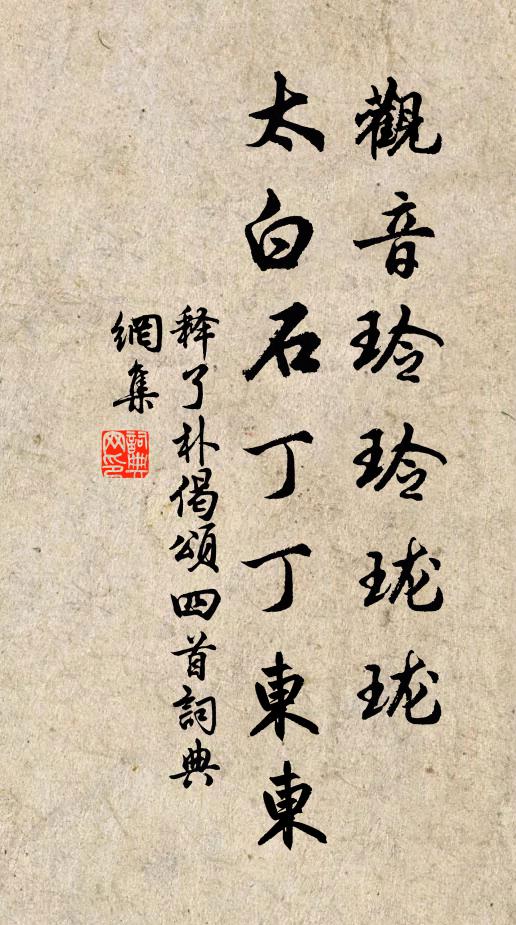 觀音玲玲珑珑
太白石丁丁東東
释了朴偈頌四首詞典
網集
詞典网印